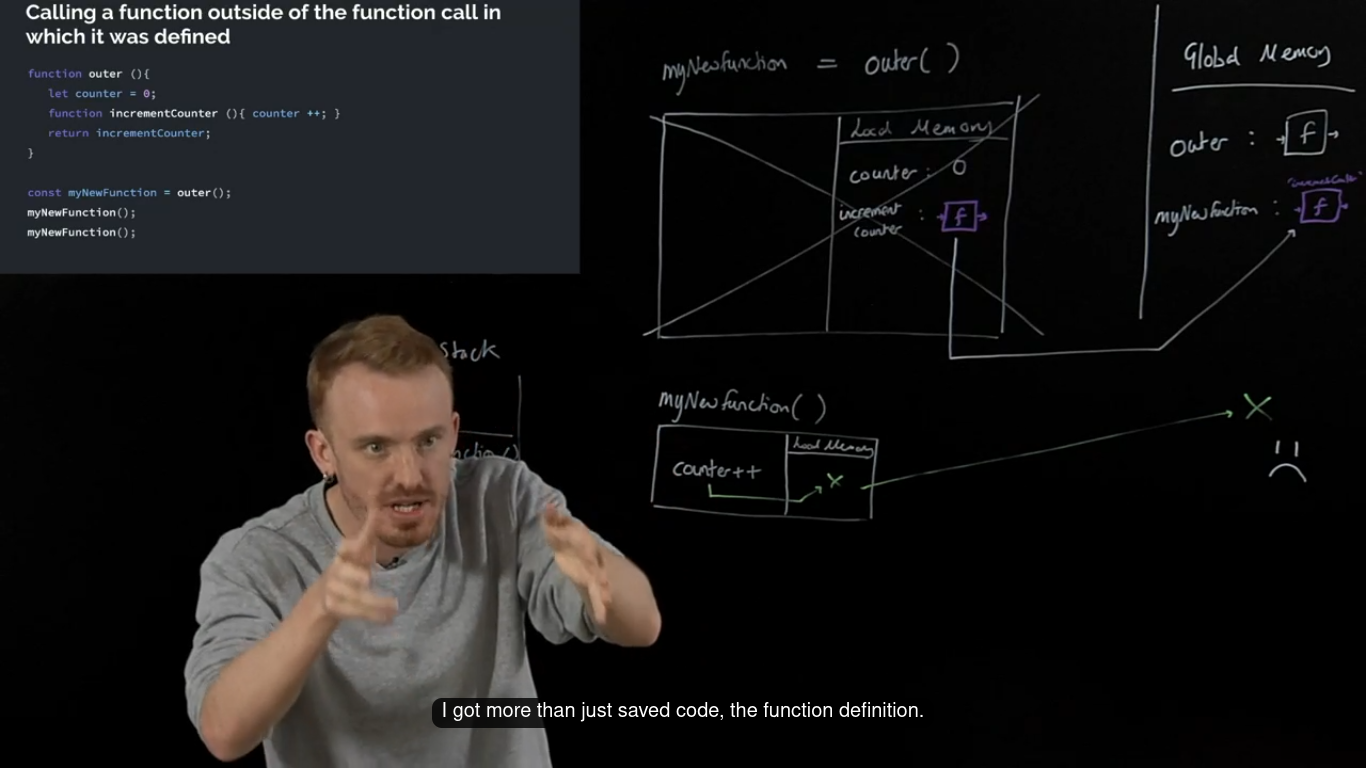 Calling a function outside of the function call in
which it was defined
function outer (){
let counter = 0;
function incrementCounter (){ counter ++; }
return incrementCounter;
}
const myNewFunction = outer();
myNewFunction();
myNewFunction();
myNewfunction = outer( )
Local Memory
counter : 0
increment
counter : f
Global Memory
outer : f
"incrementCounter"
myNewfunction : f
Stack
myNewfunction( )
Local Memory
counter++
I got more than just saved code, the function definition.